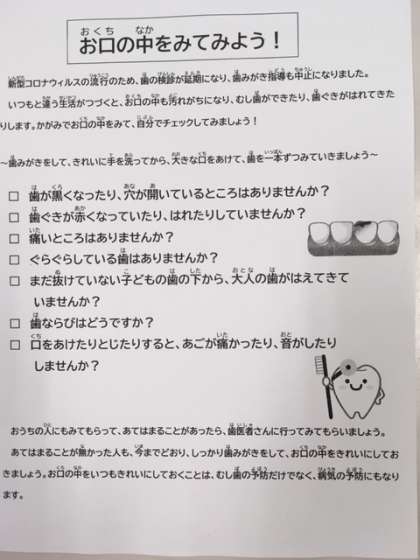 お口の中をみてみよう！
新型コロナウィルスの流行のため、歯の検診が延期になり、歯みがき指導も中止になりました。
いつもと違う生活がつづくと、お口の中も汚れがちになり、むし歯ができたり、歯ぐきがはれてきた
りします。かがみでお口の中をみて、自分でチェックしてみましょう！
～歯みがきをして、きれいに手を洗ってから、大きな口をあけて、歯を一本ずつみていきましょう～
□ 歯が黒くなったり、穴が開いているところはありませんか？
□ 歯ぐきが赤くなっていたり、はれたりしていませんか？
□ 痛いところはありませんか？
□ ぐらぐらしている歯はありませんか？
□ まだ抜けていない子どもの歯の下から、大人の歯がはえてきて
いませんか？
□ 歯ならびはどうですか？
□ 口をあけたりとじたりすると、あごが痛かったり、音がしたり
しませんか？
おうちの人にもみてもらって、あてはまることがあったら、歯医者さんに行ってみてもらいましょう。
あてはまることが無かった人も、今までどおり、しっかり歯みがきをして、お口の中をきれいにしてお
きましょう。お口の中をいつもきれいにしておくことは、むし歯の予防だけでなく、病気の予防にもなり
ます。